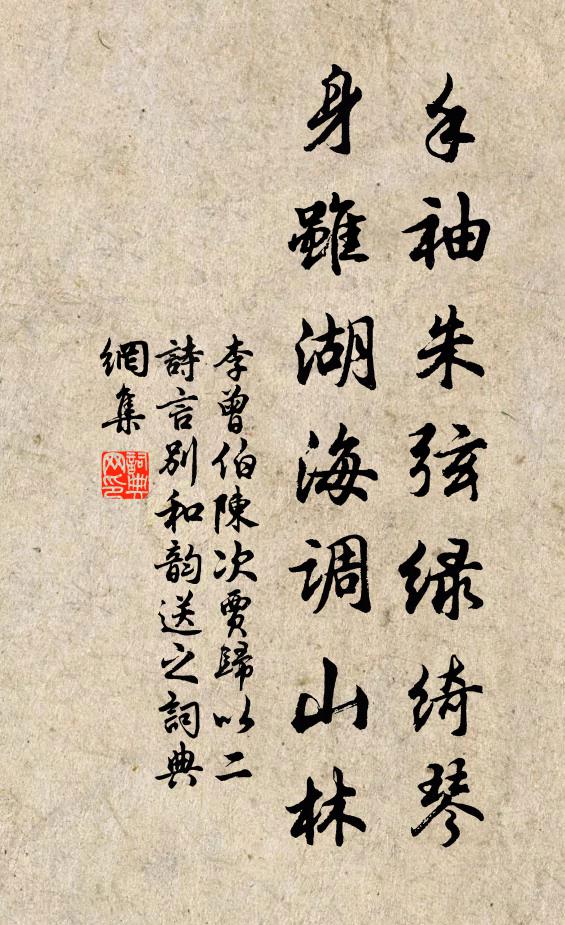 手袖朱弦绿绮琴
身雖湖海調山林
李曾伯陳次賈歸以二
詩言別和韵送之詞典
網集
詞典網印